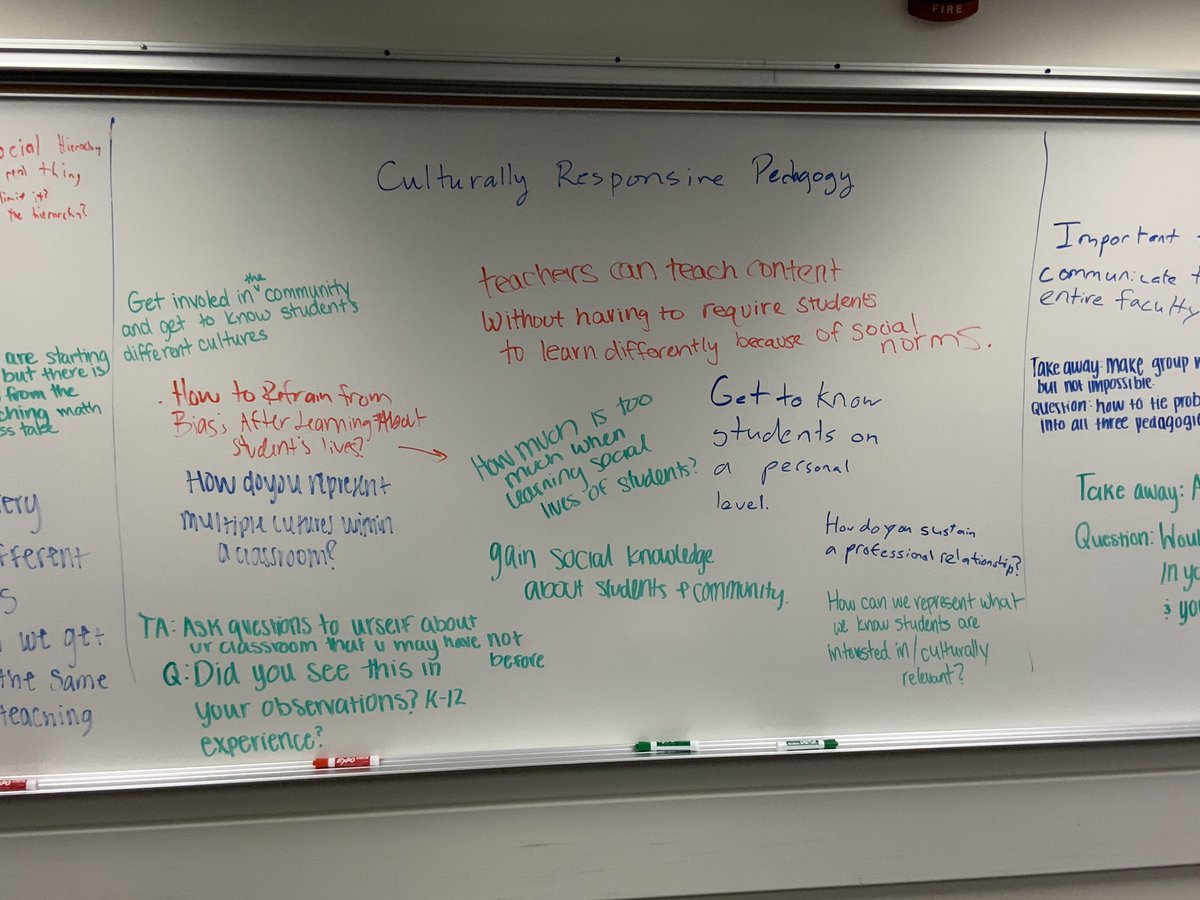 FIRE
ocial Hierachy
real thing
limit it?
the hierarchy?
are starting
but there is
from the
ching math
ss take
ery
fferent
s
we get
the same
teaching
Culturally Responsive Pedagogy
Get involed in the community
and get to know student's
different cultures
teachers can teach content
without having to require students
to learn differently because of social
norms.
. How to Refrain from
Bias; After Learning About
student's lives?
How much is too
much when
learning social
lives of students?
Get to know
students on
a personal
level.
How do you represent
multiple cutures within
a classroom?
gain social knowledge
about students + community.
How do you sustain
a professional relationship?
How can we represent what
we know students are
interested in/culturally
relevant?
TA: Ask questions to urself about
ur classroom that u may have not
before
Q: Did you see this in
your observations? K-12
experience?
Important
communicate t
entire faculty
Take away: make group w
but not impossible.
Question: how to tie prob
into all three pedagogie
Take away: A
Question: Woul
in yo
you
EXPO